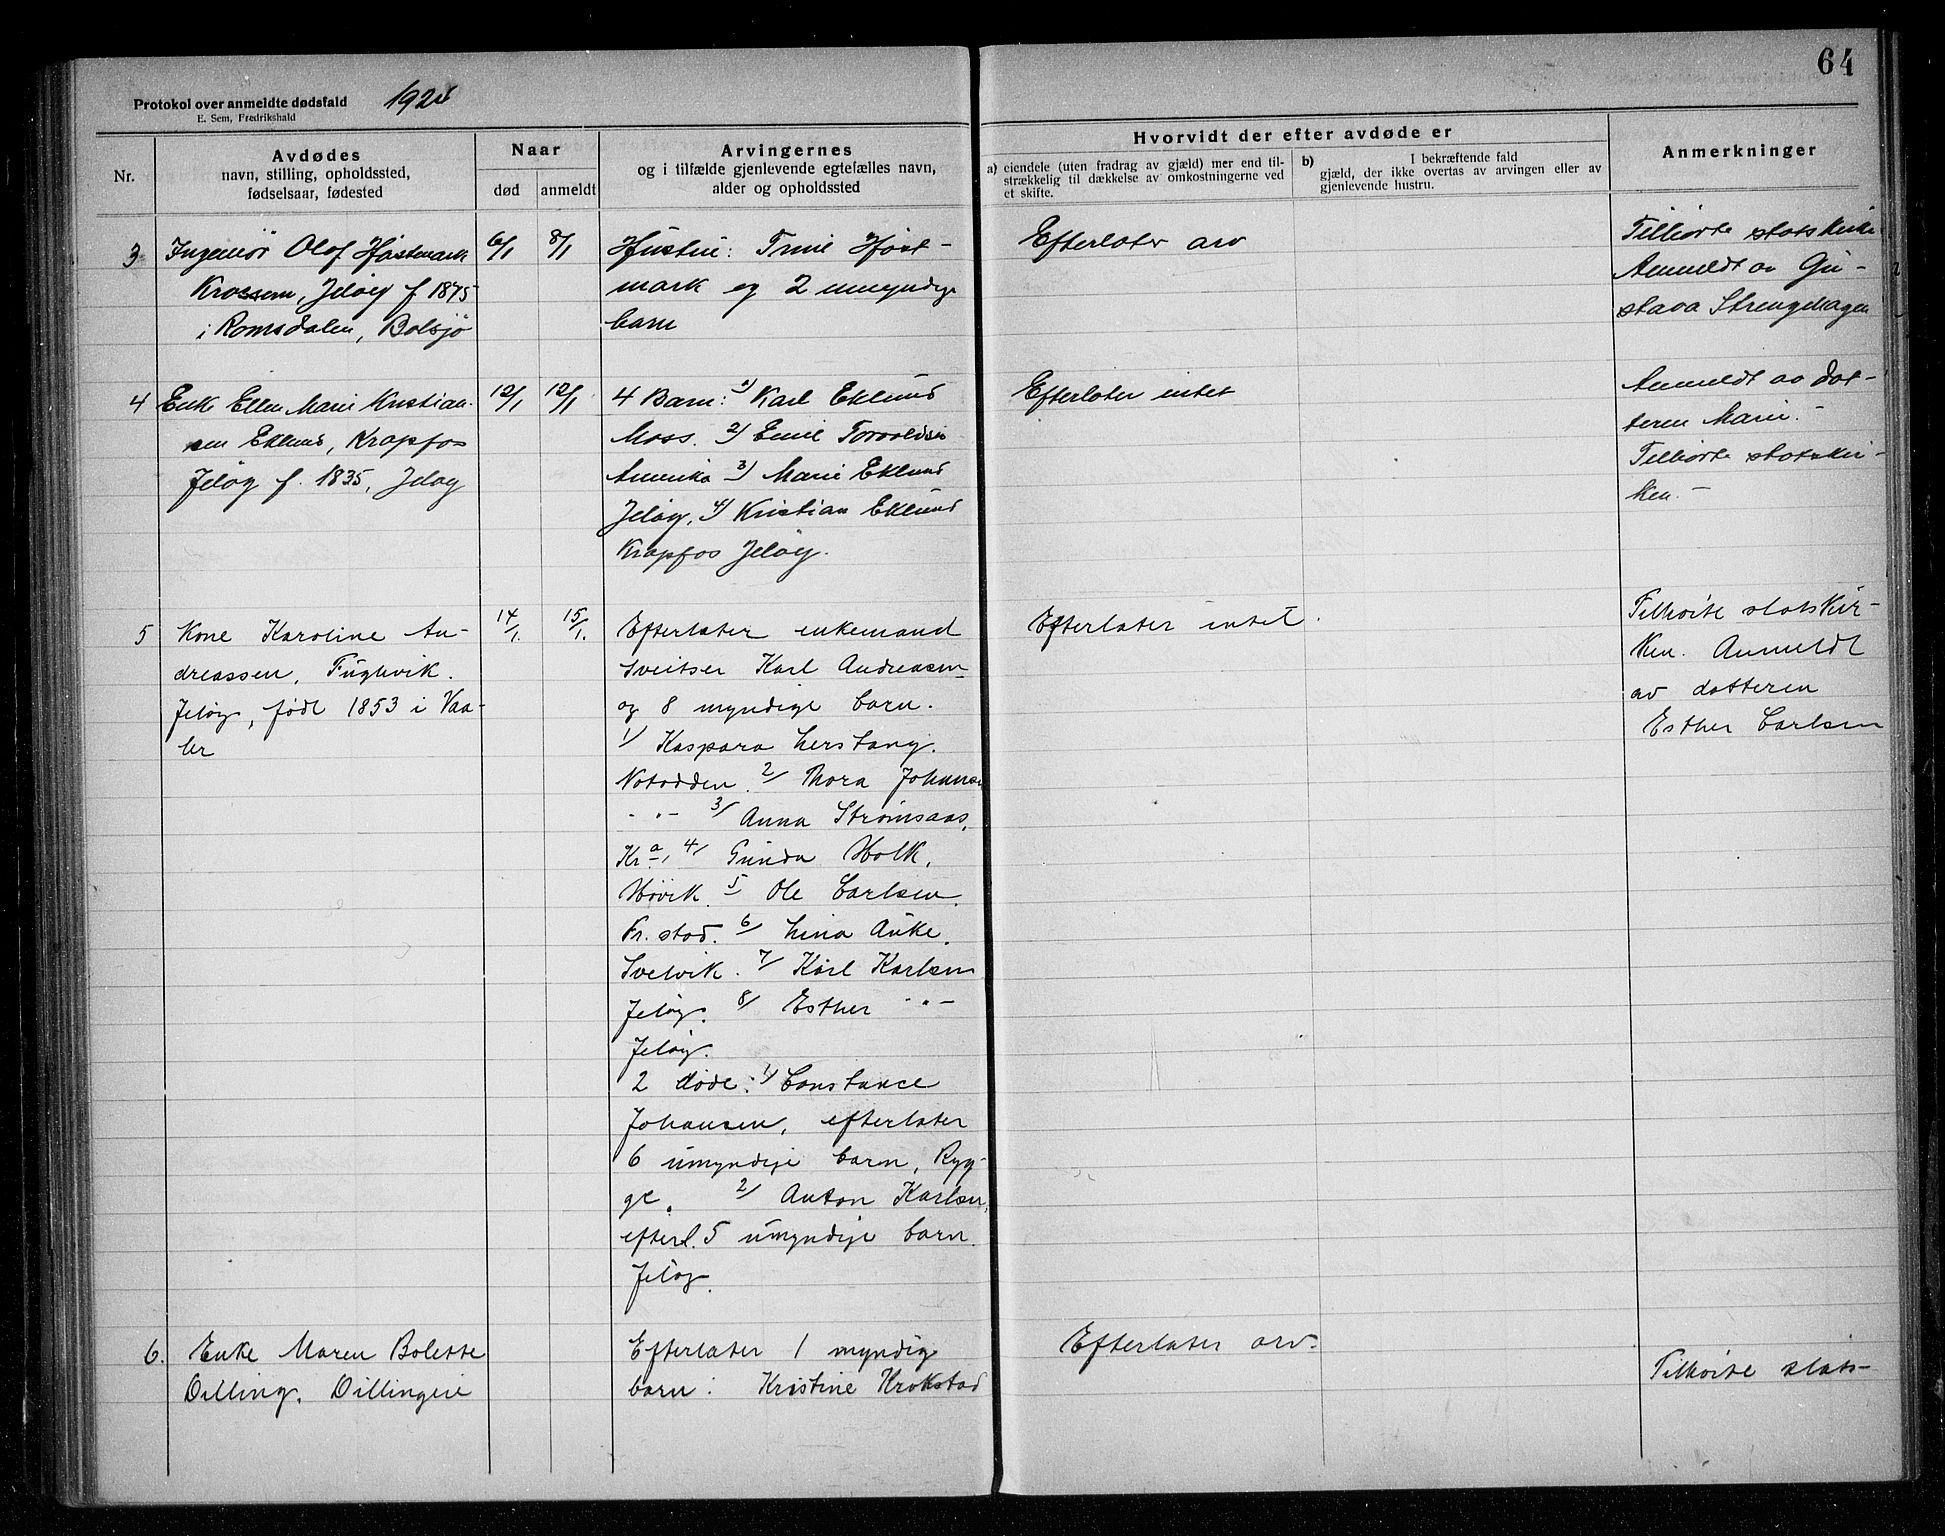 64
Protokol over anmeldte dødsfald
E. Sem, Fredrikshald
Nr.
Avdødes
navn, stilling, opholdssted,
fødselsaar, fødested
Naar
død
anmeldt
Arvingernes
og i tilfælde gjenlevende egtefælles navn,
alder og opholdssted
Hvorvidt der efter avdøde er
a) eiendele (uten fradrag av gjæld) mer end til-
strækkelig til dækkelse av omkostningerne ved
et skifte.
b) I bekræftende fald
gjæld, der ikke overtas av arvingen eller av
gjenlevende hustru.
Anmerkninger
3
Ingeniør Olof Hjostemark
Krossern, Jeløy f 1875
i Romsdalen, Bolsjø
6/1
8/1
Hustru: Trine Hjost-
mark og 2 umyndige
barn
Efterlater arv
Tilhørte statskirke
Anmeldt av Gu-
stava Strengehagen
4
Enke Ellen Marie Kristian-
sen Eklund, Krapfos
Jeløy f. 1835, Jeløy
12/1
12/1
4 Barn: 1) Karl Eklund
Moss. 2) Emil Torvaldsen
Amerika 3) Marie Eklund
Jeløy, 4) Kristian Eklund
Krapfos Jeløy.
Efterlater intet
Anmeldt av dat-
teren Marie.-
Tilhørte statskir-
ken.-
5
Kone Karoline An-
dreassen, Fuglevik.
Jeløy, født 1853 i Vaa-
ler
14/1.
15/1.
Efterlater enkemand
sveitser Karl Andreasen
og 8 myndige barn.
1/ Kaspara Lerstang.
Notodden. 2/ Thora Johansen
- " - 3/ Anna Strømsaas,
Kra, 4/ Gunda Holk,
Høvik. 5 Ole Carlsen.
Fr. stad. 6/ Lina Anke.
Svelvik. 7/ Karl Karlsen
Jeløy. 8/ Esther - " -
Jeløy.
2 døde: 1/ Constance
Johansen, efterlater
6 umyndige barn, Ryg-
ge. 2/ Anton Karlsen,
efterl. 5 umyndige barn.
Jeløy.
Efterlater intet.
Tilhørte statskir-
ken. Anmeldt
av datteren
Esther Carlsen
6.
Enke Maren Bolette
Dilling, Dillingøie
Efterlater 1 myndig
barn: Kristine Krokstad
Efterlater arv.
Tilhørte stats-